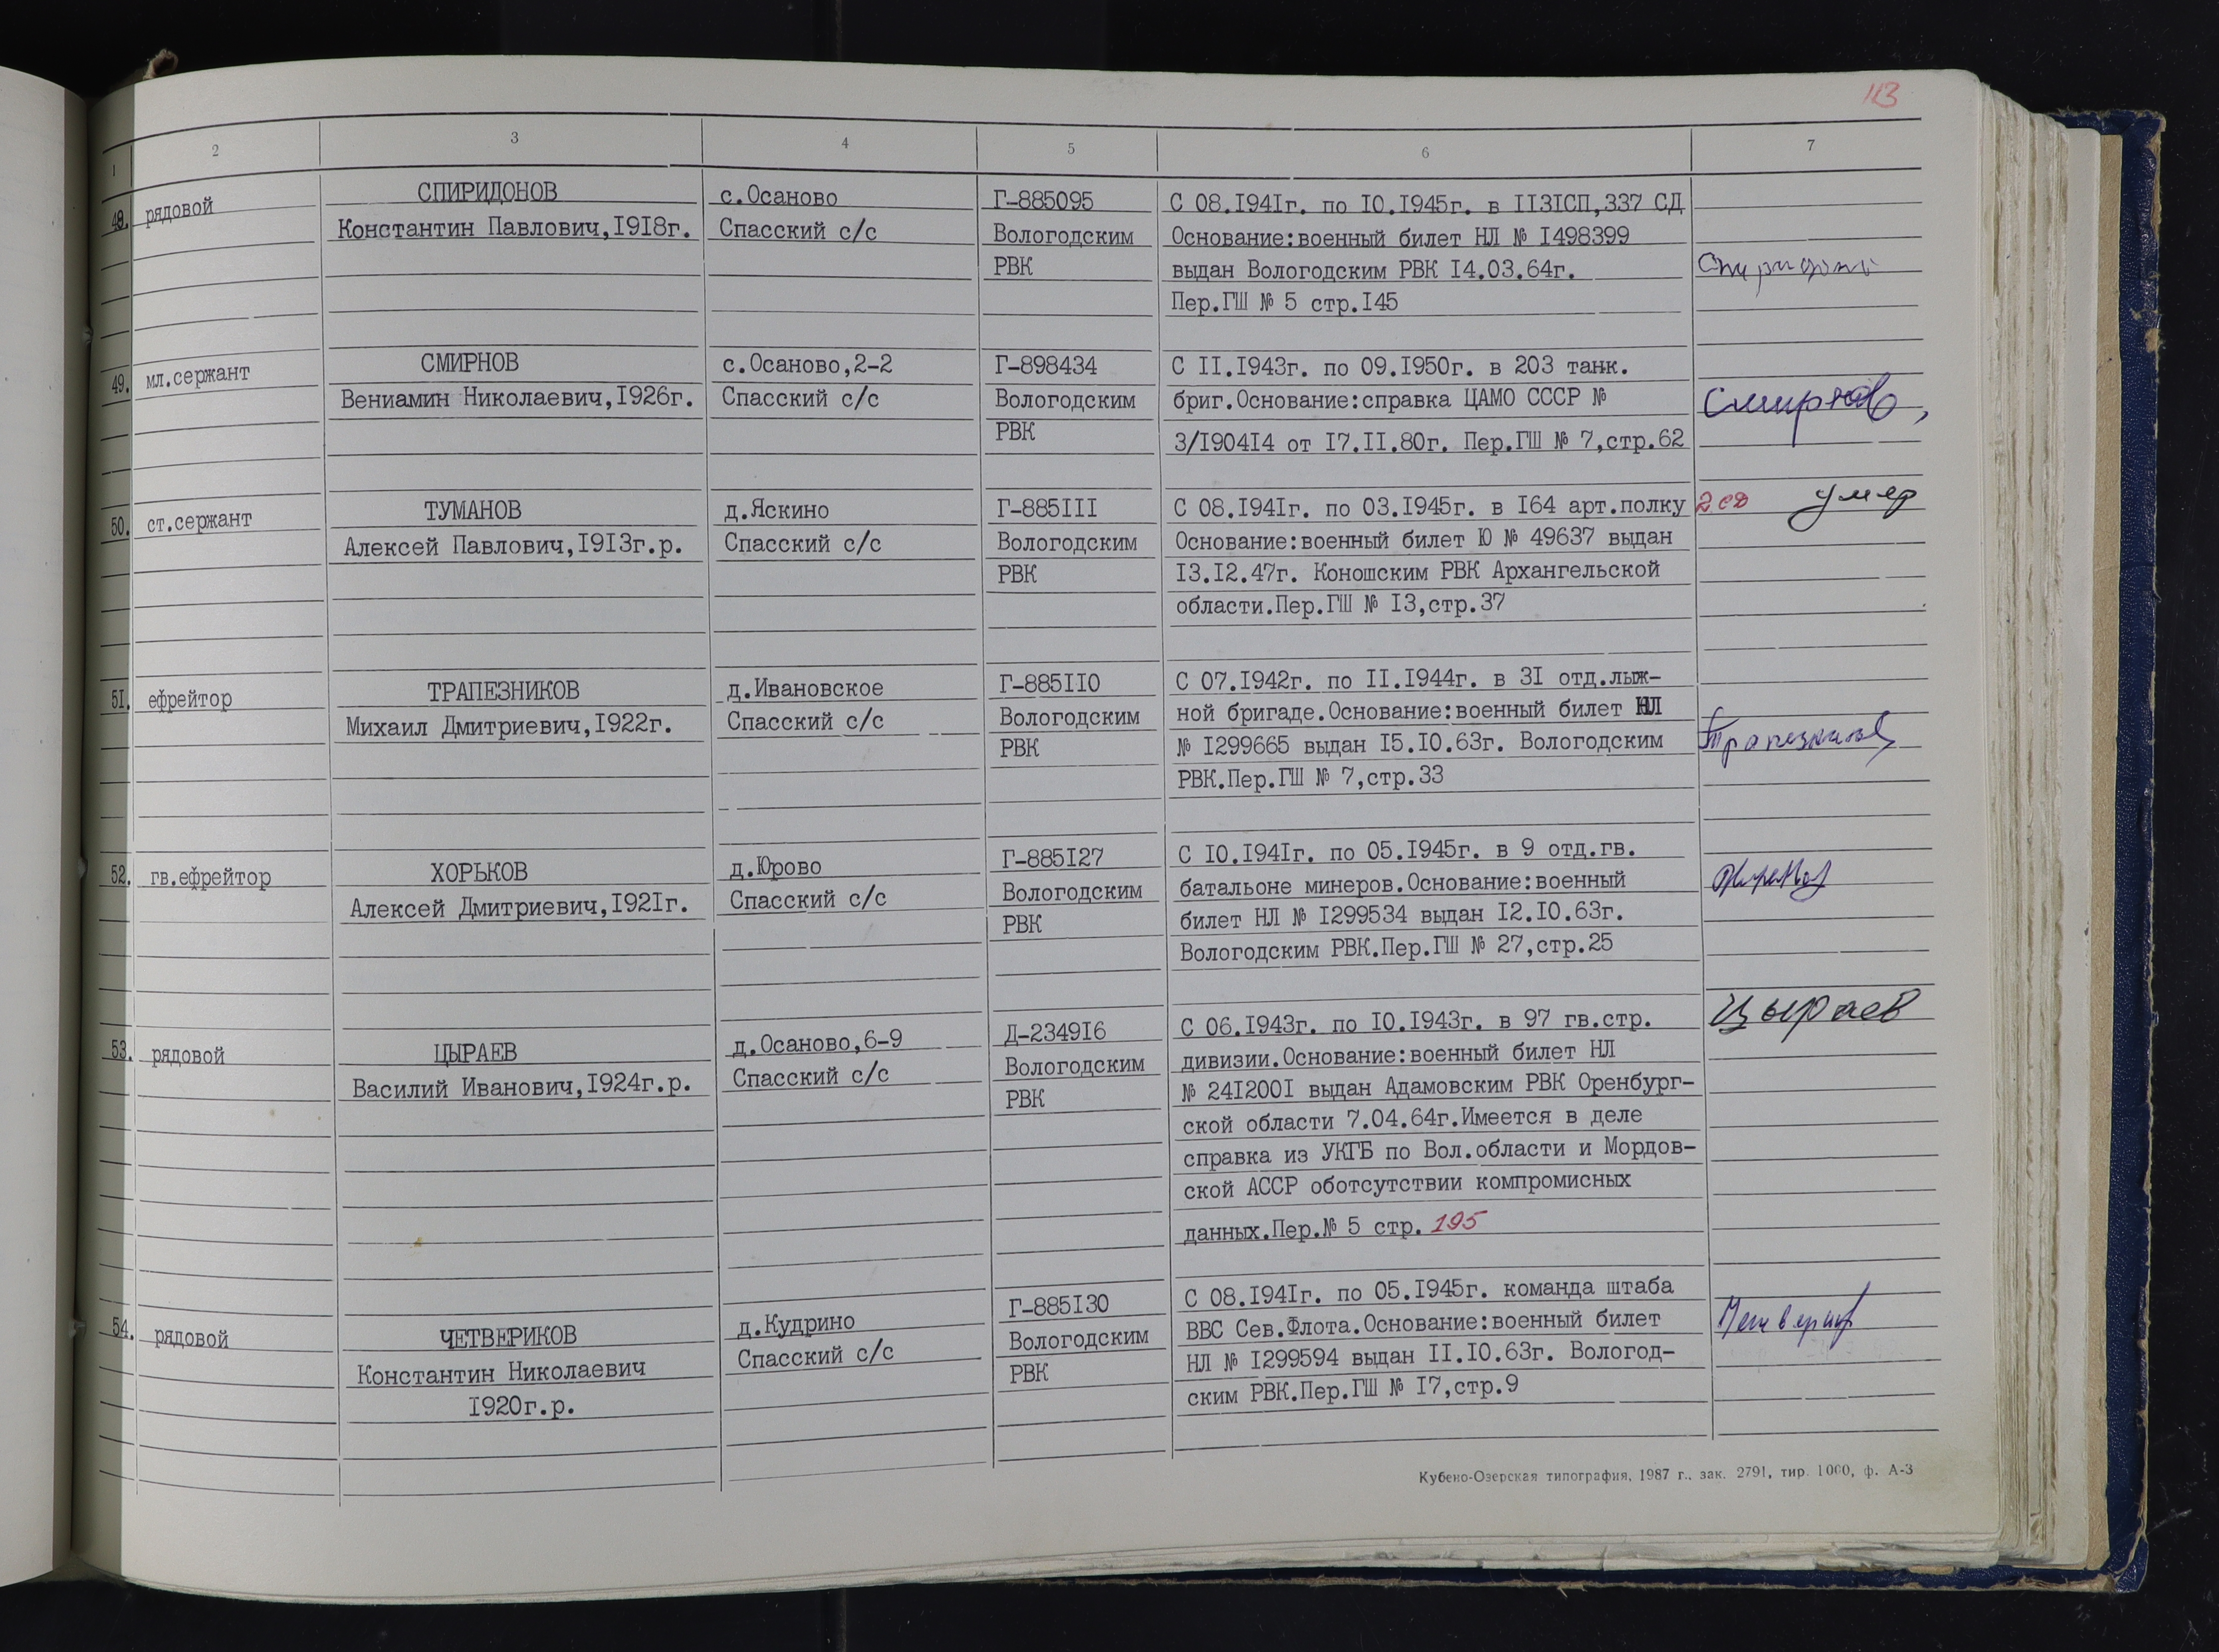 113
1 2 3 4 5 6 7
48. рядовой
СПИРИДОНОВ
Константин Павлович,I9I8г.
с.Осаново
Спасский с/с
Г-885095
Вологодским
РВК
С 08.I94Iг. по I0.I945г. в II3IСП,337 СД
Основание:военный билет НЛ № I498399
выдан Вологодским РВК I4.03.64г.
Пер.ГШ № 5 стр.I45
49. мл.сержант
СМИРНОВ
Вениамин Николаевич,I926г.
с.Осаново,2-2
Спасский с/с
Г-898434
Вологодским
РВК
С II.I943г. по 09.I950г. в 203 танк.
бриг.Основание:справка ЦАМО СССР №
3/I904I4 от I7.II.80г. Пер.ГШ № 7,стр.62
Смирнов,
50. ст.сержант
ТУМАНОВ
Алексей Павлович,I9I3г.р.
д.Яскино
Спасский с/с
Г-885III
Вологодским
РВК
С 08.I94Iг. по 03.I945г. в I64 арт.полку
Основание:военный билет Ю № 49637 выдан
I3.I2.47г. Коношским РВК Архангельской
области.Пер.ГШ № I3,стр.37
умер
5I. ефрейтор
ТРАПЕЗНИКОВ
Михаил Дмитриевич,I922г.
д.Ивановское
Спасский с/с
Г-885II0
Вологодским
РВК
С 07.I942г. по II.I944г. в 3I отд.лыж-
ной бригаде.Основание:военный билет НЛ
№ I299665 выдан I5.I0.63г. Вологодским
РВК.Пер.ГШ № 7,стр.33
Трапезников
52. гв.ефрейтор
ХОРЬКОВ
Алексей Дмитриевич,I92Iг.
д.Юрово
Спасский с/с
Г-885I27
Вологодским
РВК
С I0.I94Iг. по 05.I945г. в 9 отд.гв.
батальоне минеров.Основание:военный
билет НЛ № I299534 выдан I2.I0.63г.
Вологодским РВК.Пер.ГШ № 27,стр.25
53. рядовой
ЦЫРАЕВ
Василий Иванович,I924г.р.
д.Осаново,6-9
Спасский с/с
Д-2349I6
Вологодским
РВК
С 06.I943г. по I0.I943г. в 97 гв.стр.
дивизии.Основание:военный билет НЛ
№ 24I200I выдан Адамовским РВК Оренбург-
ской области 7.04.64г.Имеется в деле
справка из УКГБ по Вол.области и Мордов-
ской АССР оботсутствии компромисных
данных.Пер.№ 5 стр. 195
Цыраев
54. рядовой
ЧЕТВЕРИКОВ
Константин Николаевич
I920г.р.
д.Кудрино
Спасский с/с
Г-885I30
Вологодским
РВК
С 08.I94Iг. по 05.I945г. команда штаба
ВВС Сев.Флота.Основание:военный билет
НЛ № I299594 выдан II.I0.63г. Вологод-
ским РВК.Пер.ГШ № I7,стр.9
Кубено-Озерская типография, 1987 г., зак. 2791, тир. 1000, ф. А-3